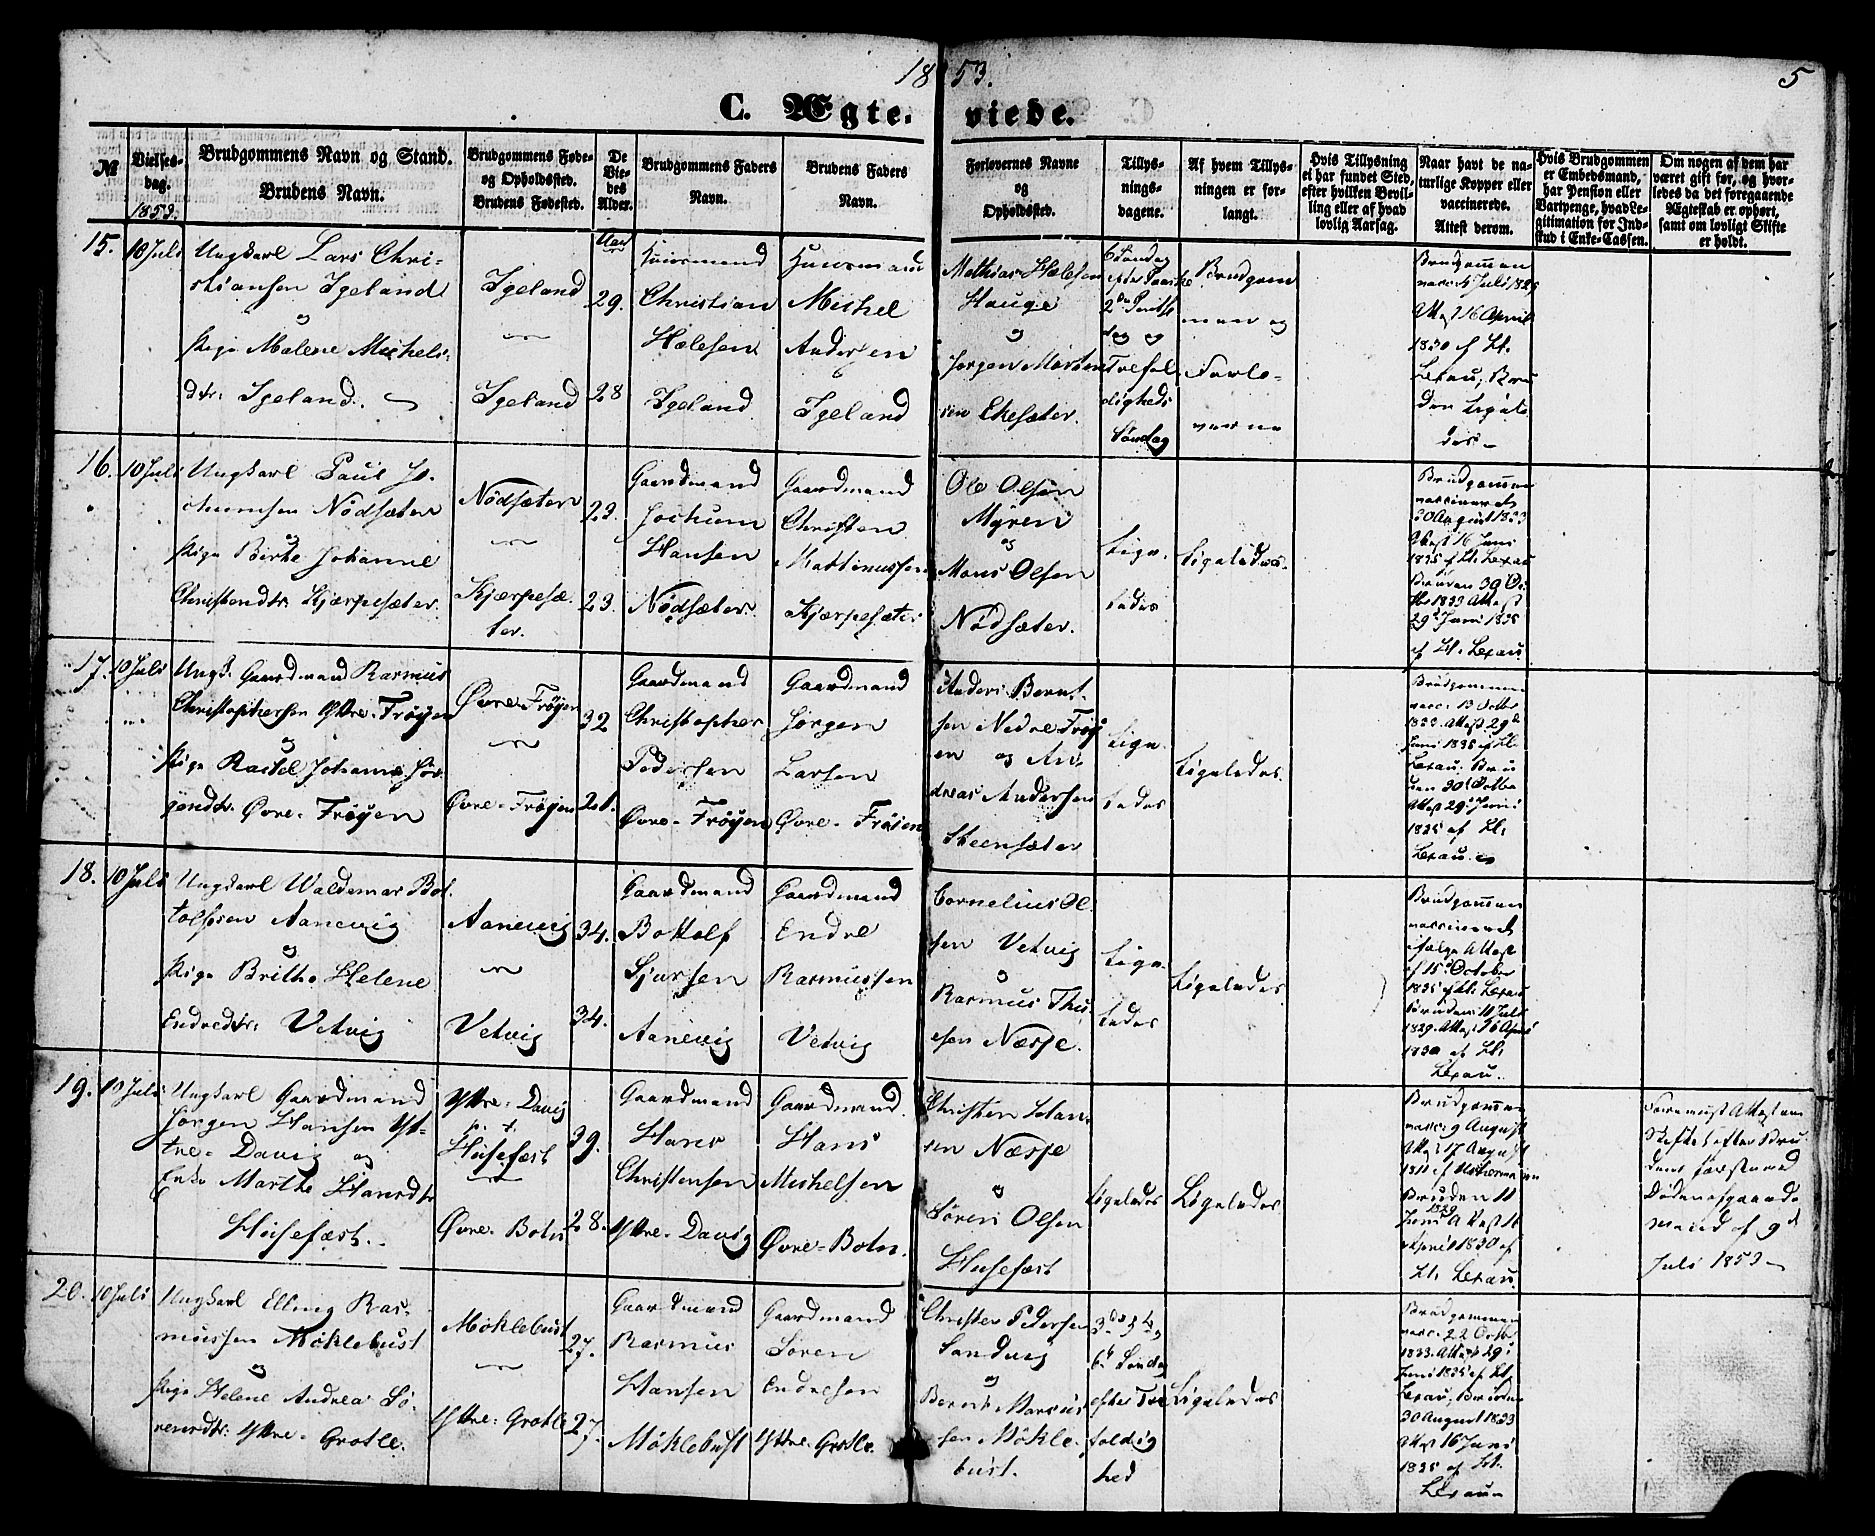 1853.
5
C. Ægteviede.
№
Vielsesdag.
1853.
Brudgommens Navn og Stand.
Brudens Navn.
Brudgommens Føde-
og Opholdssted.
Brudens Fødested.
De
Vie-
des
Alder.
Brudgommens Faders
Navn.
Brudens Faders
Navn.
Forlovernes Navne
og
Opholdssted.
Tillys-
nings-
dagene.
Af hvem Tillys-
ningen er for-
langt.
Hvis Tillysning
ei har fundet Sted,
efter hvilken Bevil-
ling eller af hvad
lovlig Aarsag.
Naar havt de na-
turlige Kopper eller
vaccinerede.
Attest derom.
Hvis Brudgommen
er Embedsmand,
har Pension eller
Vartpenge, hvad Le-
gitimation for Ind-
skud i Enke-Cassen.
Om nogen af dem har
været gift før, og hvor-
ledes da det foregaaende
Ægteskab er ophørt,
samt om lovligt Skifte
er holdt.
15.
10 Juli
Ungkarl Lars Chri-
stiansen Igeland
og
Pige Malene Michels-
dtr. Igeland.
Igeland
Igeland
Aar
29.
28
Huusmand
Christian
Halesen
Igeland
Huusmand
Michel
Andersen
Igeland
Mathias Halesen
Hauge
og
Jørgen Morten-
sen Ekesæter.
6 Søndag
efter Paaske
2den Pintse
dag og
Trefol
digheds
Søndag
Brudgom
men og
Forlo-
verne
Brudgommen
vacc. 5 Juli 1829
Attest 16 April
1830 af Lt.
Lexau, Bru
den ligele
des
16.
10 Juli
Ungkarl Paul Jo-
chumsen Nödsæter
og
Pige Birthe Johanne
Christendtr. Kjærpesæter.
Nödsæter
Kjærpesæ-
ter.
23.
23.
Gaardmand
Jochum
Hansen
Nödsæter
Gaardmand
Christen
Mattinussen
Kjærpesæter
Ole Olsen
Myren
og
Mons Olsen
Nödsæter.
Lige-
ledes
Ligeledes.
Brudgommen
vaccineret
30 August 1833
Attest 16 Juni
1835 af Lt. Lexau
Bruden 30 Oc
tbr 1833 Attest
29d Juni 1835
af Lt. Lexau.
17.
10 Juli
Ungk. Gaardmand Rasmus
Christophersen Yttre-Frøyen
og
Pige Rachel Johanne Jør-
gendtr. Øvre-Frøyen
Øvre Frøyen
Øvre-Frøyen
32
21.
Gaardmand
Christopher
Pedersen
Øvre-Frøyen
Gaardmand
Jørgen
Larsen
Øvre-Frøien
Anders Bernt-
sen Nedre Frøy
en og An-
dreas Andersen
Steensæter
Lige-
ledes
Ligeledes
Brudgommen
vacc. 13 Octbr
1833. Attest 29d
Juni 1835 af Lt.
Lexau. Bru
den 30d Octbr
Attest 29d Juni
1835 af Lt.
Lexau.
18.
10 Juli
Ungkarl Waldemar Bot-
tolfsen Aanevig
og
Pige Brithe Helene
Endredtr. Vetvig
Aanevig
Vetvig
34.
34.
Gaardmand
Bottolf
Sjursen
Aanevig
Gaardmand
Endre
Rasmussen
Vetvig
Cornelius Ol-
sen Vetvig
og
Rasmus Thu-
esen Næsje.
Lige-
ledes
Ligeledes
Brudgommen
vaccineret
ifølge Attest
af 15d October
1835 af Lt. Lexau
Bruden 11 Juli
1829. Attest 26 April
1830 af Lt.
Lexau.
19.
10 Juli
Ungkarl Gaardmand
Jørgen Hansen Yt-
tre-Davig og
Enke Marthe Hansdtr
Husefæst.
Yttre-Davig
p. t.
Husefæst
Øvre-Botn
39.
28.
Gaardmand
Hans
Christensen
Yttre-Davig
Gaardmand
Hans
Michelsen
Øvre-Botn.
Christen Han-
sen Næsje
og
Søren Olsen
Husefæst
Ligeledes
Ligeledes
Brudgommen
vacc. 9 August
Attest 17 August
1811 af
Bruden 11
Juni 1829 Attest 16
April 1830 af
Lt. Lexau.
Foreviist Attest om
Skifte efter Bru-
dens forste ved
Døden afgaaede
mand af 9d
Juli 1853
20.
10 Juli
Ungkarl Elling Ras-
mussen Møklebust
og
Pige Helene Andrea Sø-
rensdtr. Yttre-Grotle.
Møklebust
Yttre-Grotle
27.
27.
Gaardmand
Rasmus
Hansen
Møklebust
Gaardmand
Søren
Endresen
Yttre-Grotle.
Christen Pedersen
Sandvig
og
Berent Marcus-
sen Møkle-
bust.
3die, 4de,
6te Søndag
efter Tre
foldig
hed
Ligeledes
Brudgommen
vacc. 22 Octbr
1833. Attest 29d
Juni 1835 af Lt.
Lexau, Bruden
30 August 1833
Attest 16 Juni
1835 af Lt.
Lexau